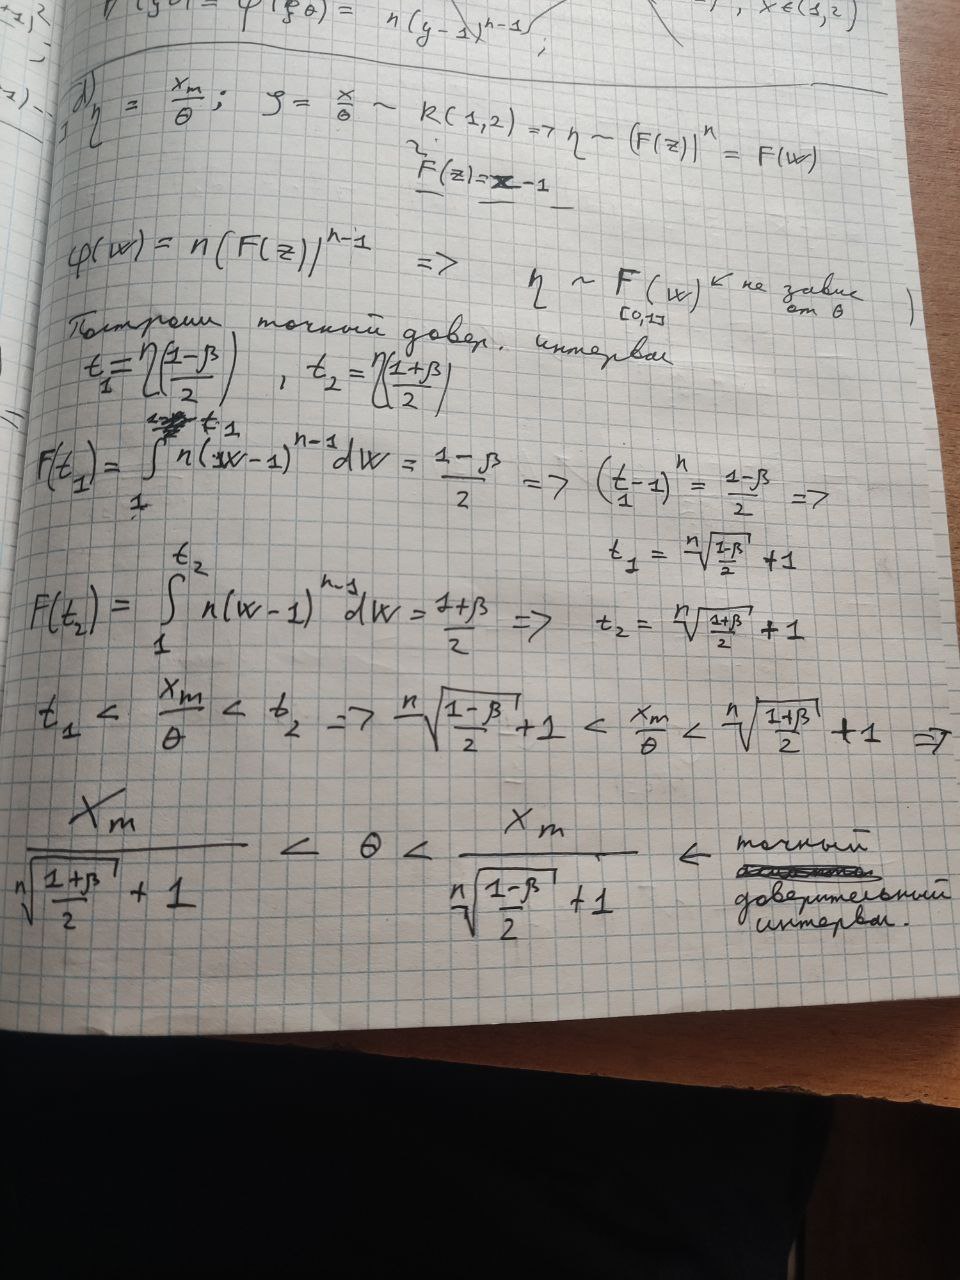 n(y-1)^{n-1};
, x∈(1,2)
d) η = x_m/θ; ζ = x/θ ~ R(1,2) => η ~ (F(z))^n = F(w)
F(z)=x-1
φ(w) = n(F(z))^{n-1} => η ~ F(w) ← не завис от θ
[0,1]
точный довер. интервал
t_1 = η((1-β)/2), t_2 = η((1+β)/2)
F(t_1) = ∫_1^{t_1} n(w-1)^{n-1}dw = (1-β)/2 => (t_1-1)^n = (1-β)/2 =>
t_1 = ⁿ√((1-β)/2) + 1
F(t_2) = ∫_1^{t_2} n(w-1)^{n-1}dw = (1+β)/2 => t_2 = ⁿ√((1+β)/2) + 1
t_1 < x_m/θ < t_2 => ⁿ√((1-β)/2) + 1 < x_m/θ < ⁿ√((1+β)/2) + 1 =>
x_m/(ⁿ√((1+β)/2) + 1) < θ < x_m/(ⁿ√((1-β)/2) + 1) ← точный
доверительный
интервал.